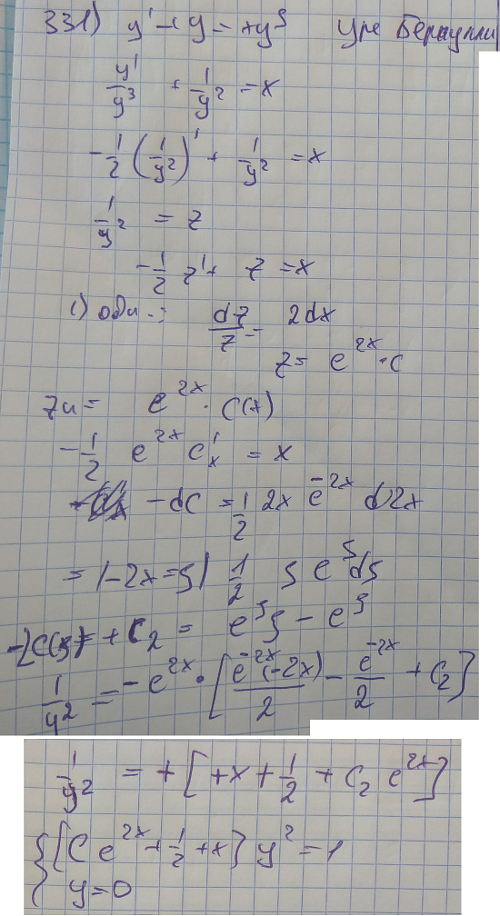 331) y' + y = xy³ Ур-е Бернулли
y'/y³ + 1/y² = x
-1/2 (1/y²)' + 1/y² = x
1/y² = z
-1/2 z' + z = x
1) одн.: dz/z = 2dx
z = e^{2x}·C
zч = e^{2x}·C(x)
-1/2 e^{2x} C'ₓ = x
-dC = 1/2 2x e^{-2x} d2x
= |-2x=ς| 1/2 ς e^ς dς
-2C(ς) + C₂ = e^ς ς - e^ς
1/y² = -e^{2x}·[e^{-2x}(-2x)/2 - e^{-2x}/2 + C₂]
1/y² = +[+x + 1/2 + C₂ e^{2x}]
{[C e^{2x} + 1/2 + x] y² = 1
y = 0